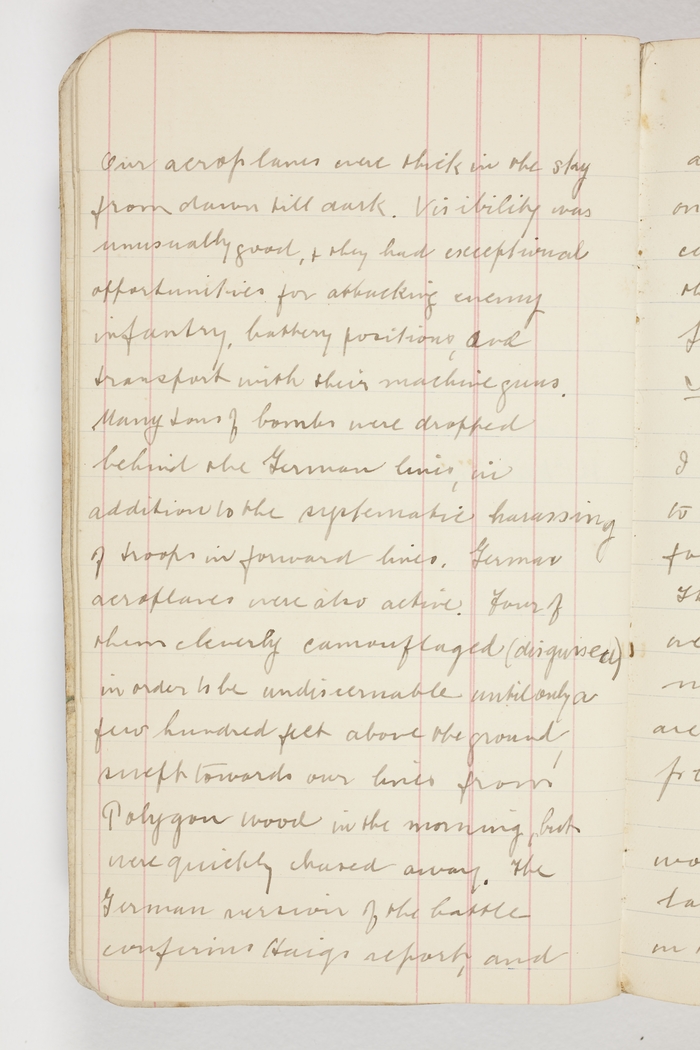 Our aeroplanes were thick in the sky
from dawn till dark. Visibility was
unusually good, & they had exceptional
opportunities for attacking enemy
infantry, battery positions, and
transport with their machine guns.
Many tons of bombs were dropped
behind the German lines, in
addition to the systematic harassing
of troops in forward lines. German
aeroplanes were also active. Four of
them cleverly camouflaged (disguised)
in order to be undiscernable until only a
few hundred feet above the ground,
swept towards our lines from
Polygon wood in the morning, but
were quickly chased away. The
German version of the battle
confirms Haigs report, and